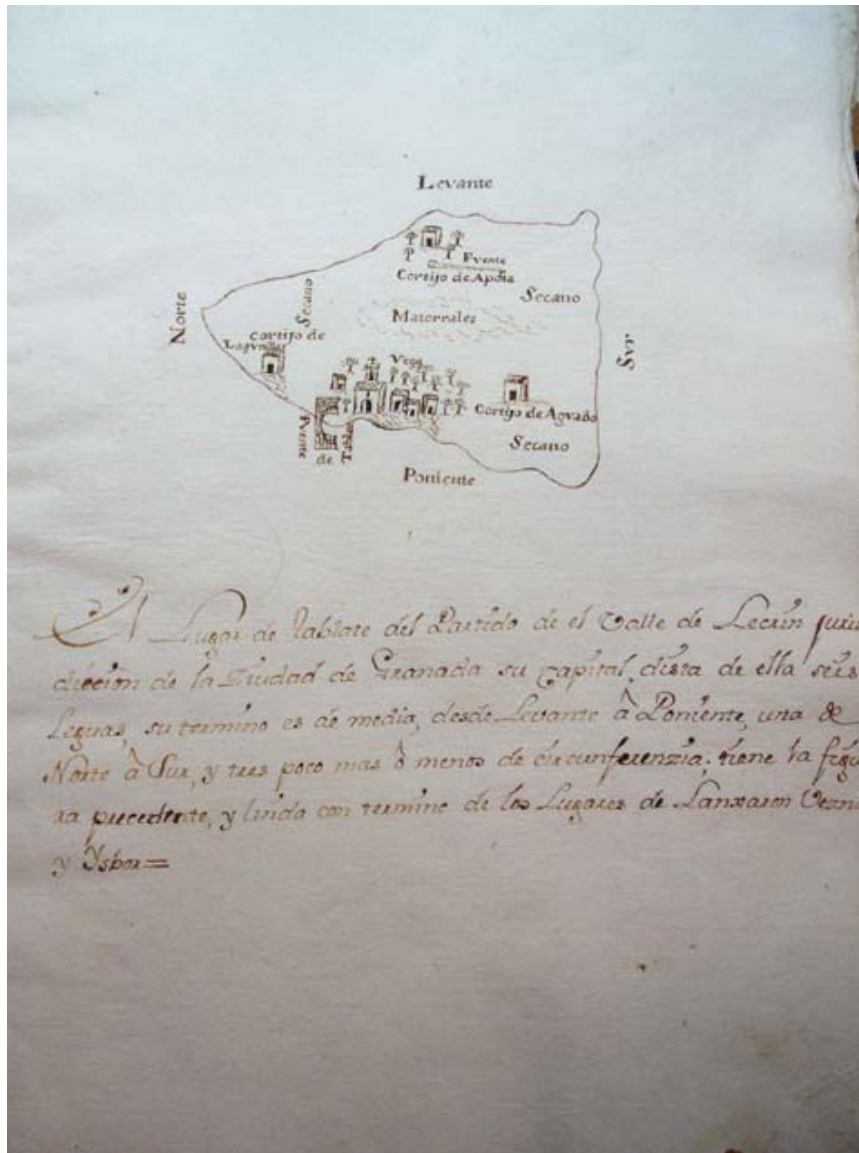 Levante
Fuente
Cortijo de Apola
Secano
Secano
Matorrales
Norte
Cortijo de
Sur
Vega
Cortijo de Aguado
Secano
Puente
de
Tablate
Poniente
El Lugar de Tablate del Partido de el Valle de Lecrin juris
diccion de la Ziudad de Granada su capital, dista de ella seis
Leguas, su termino es de media, desde Levante à Poniente, una de
Norte à Sur, y tres poco mas ò menos de circunferenzia; tiene la figu
ra precedente, y linda con termino de los Lugares de Lanxaron
y Ysbor=